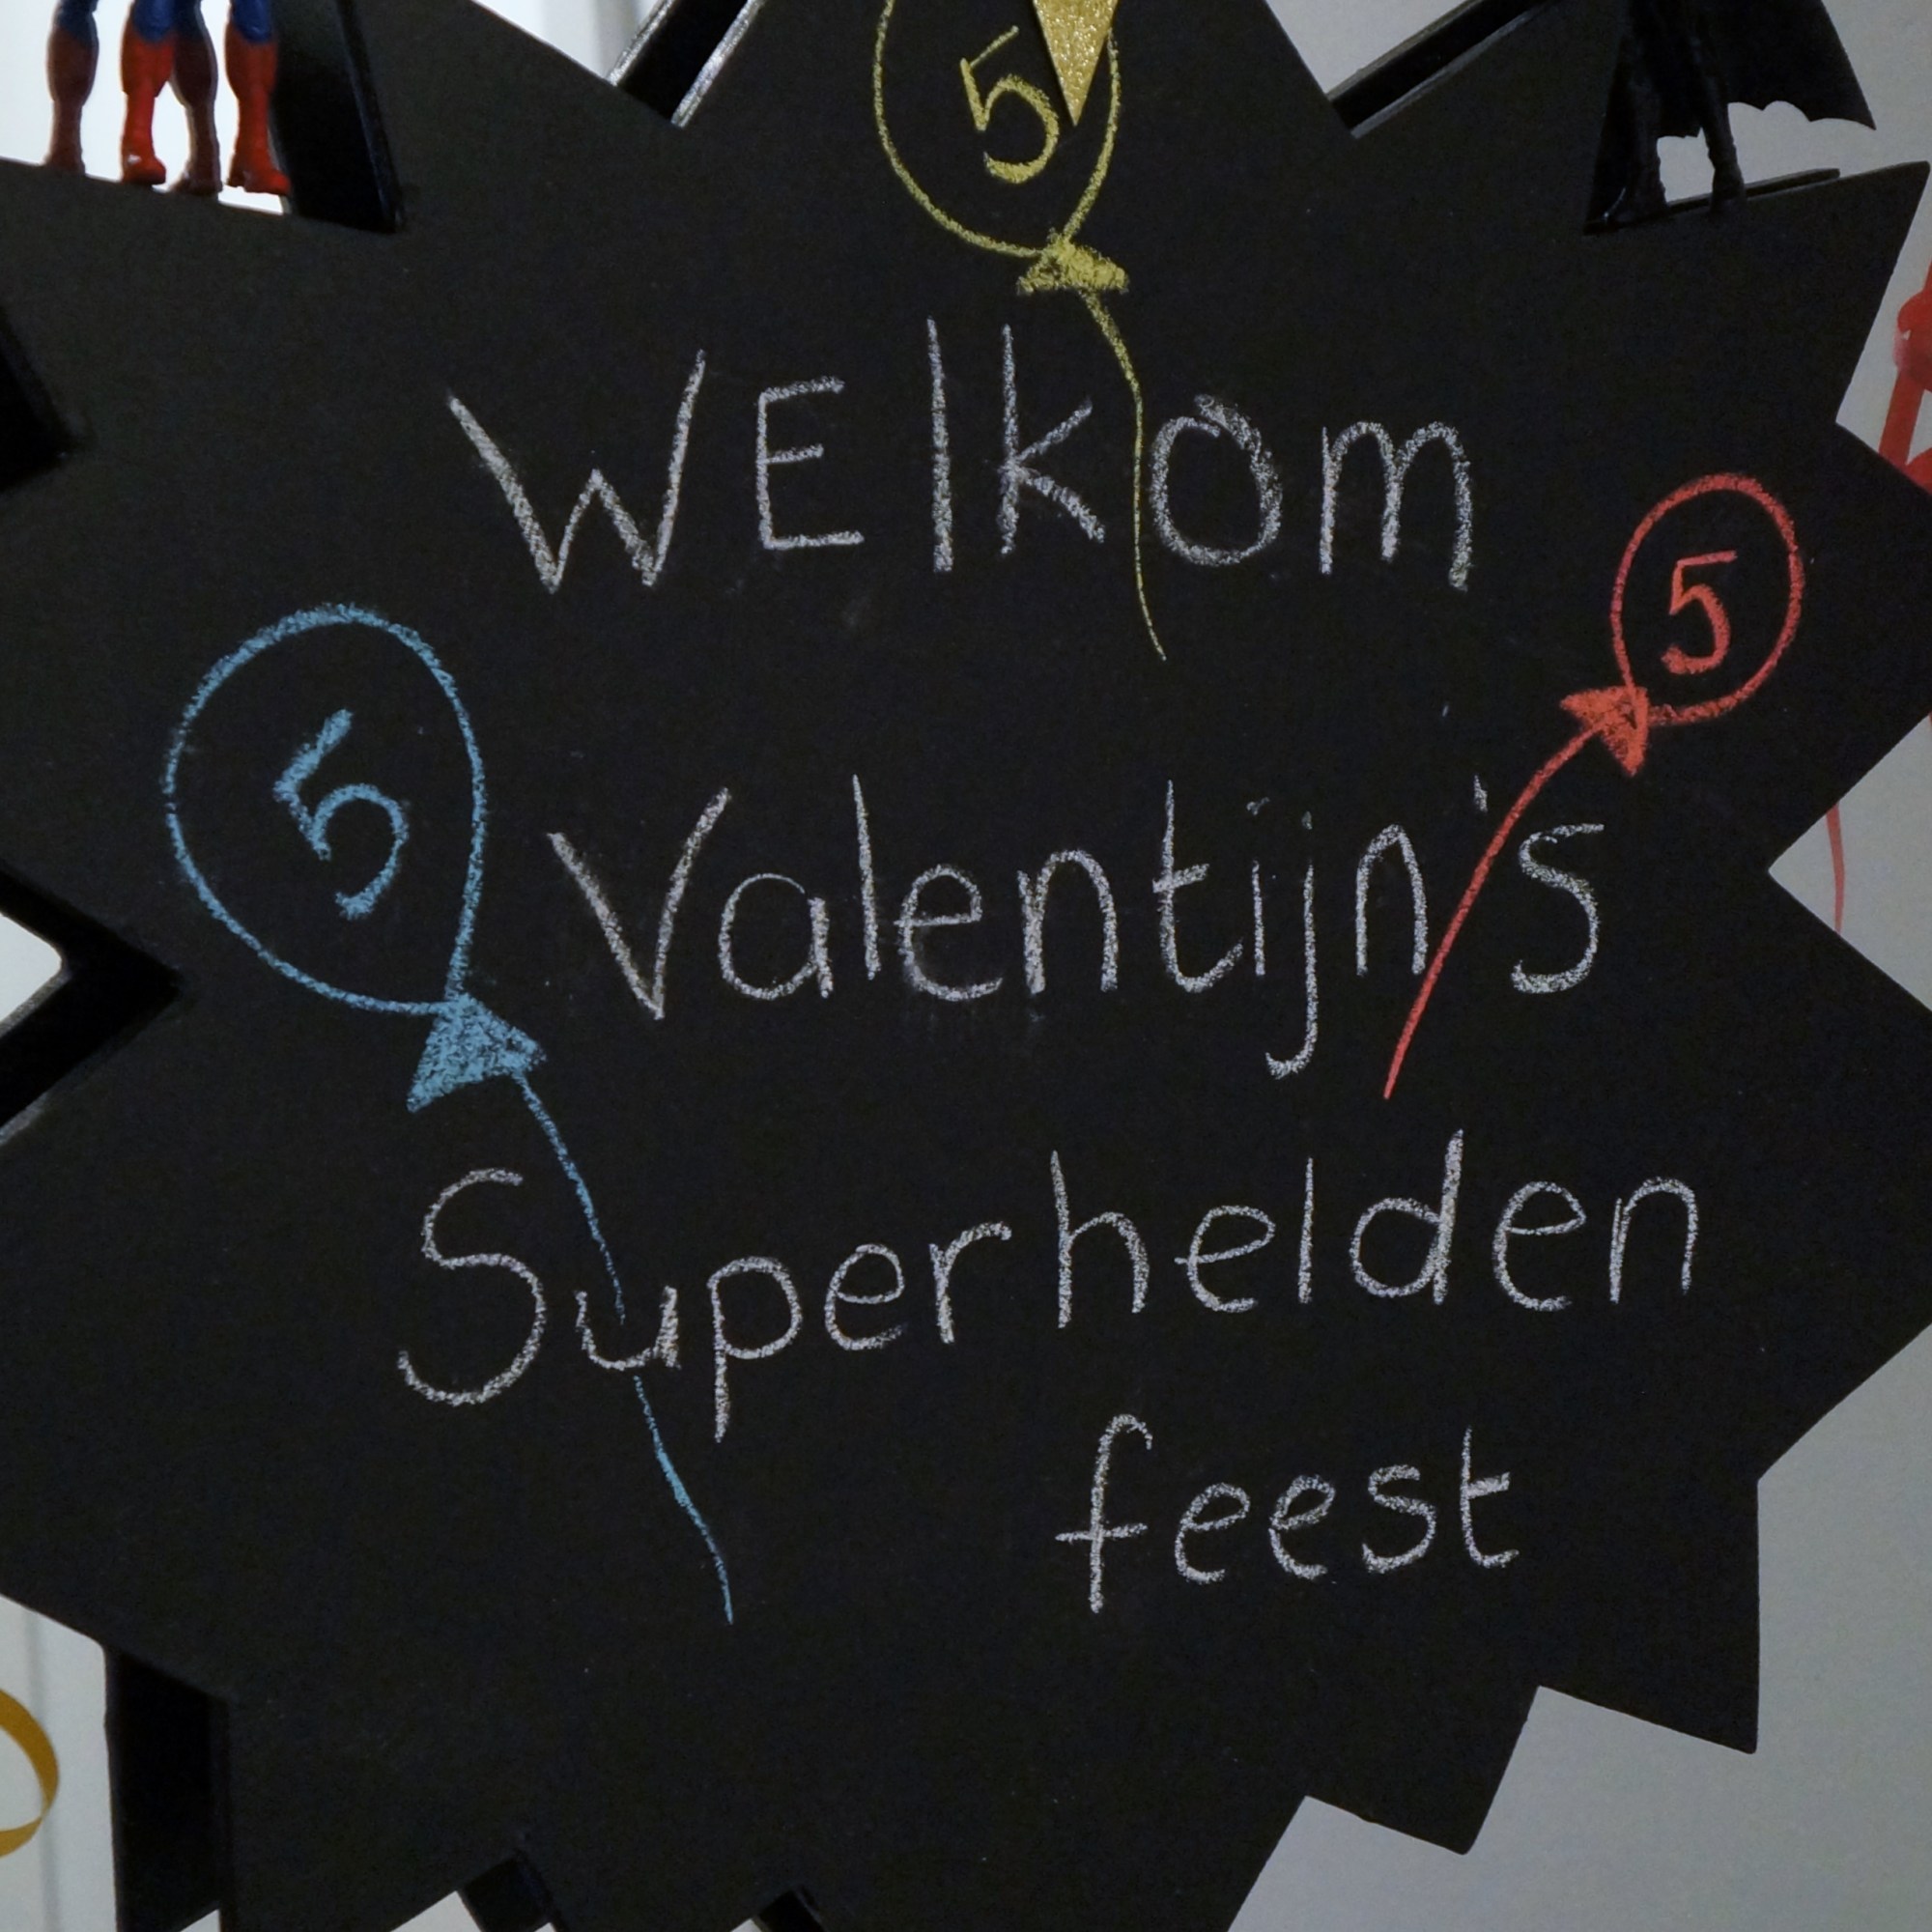 5
WElkom
5
5
Valentijn's
Superhelden
feest